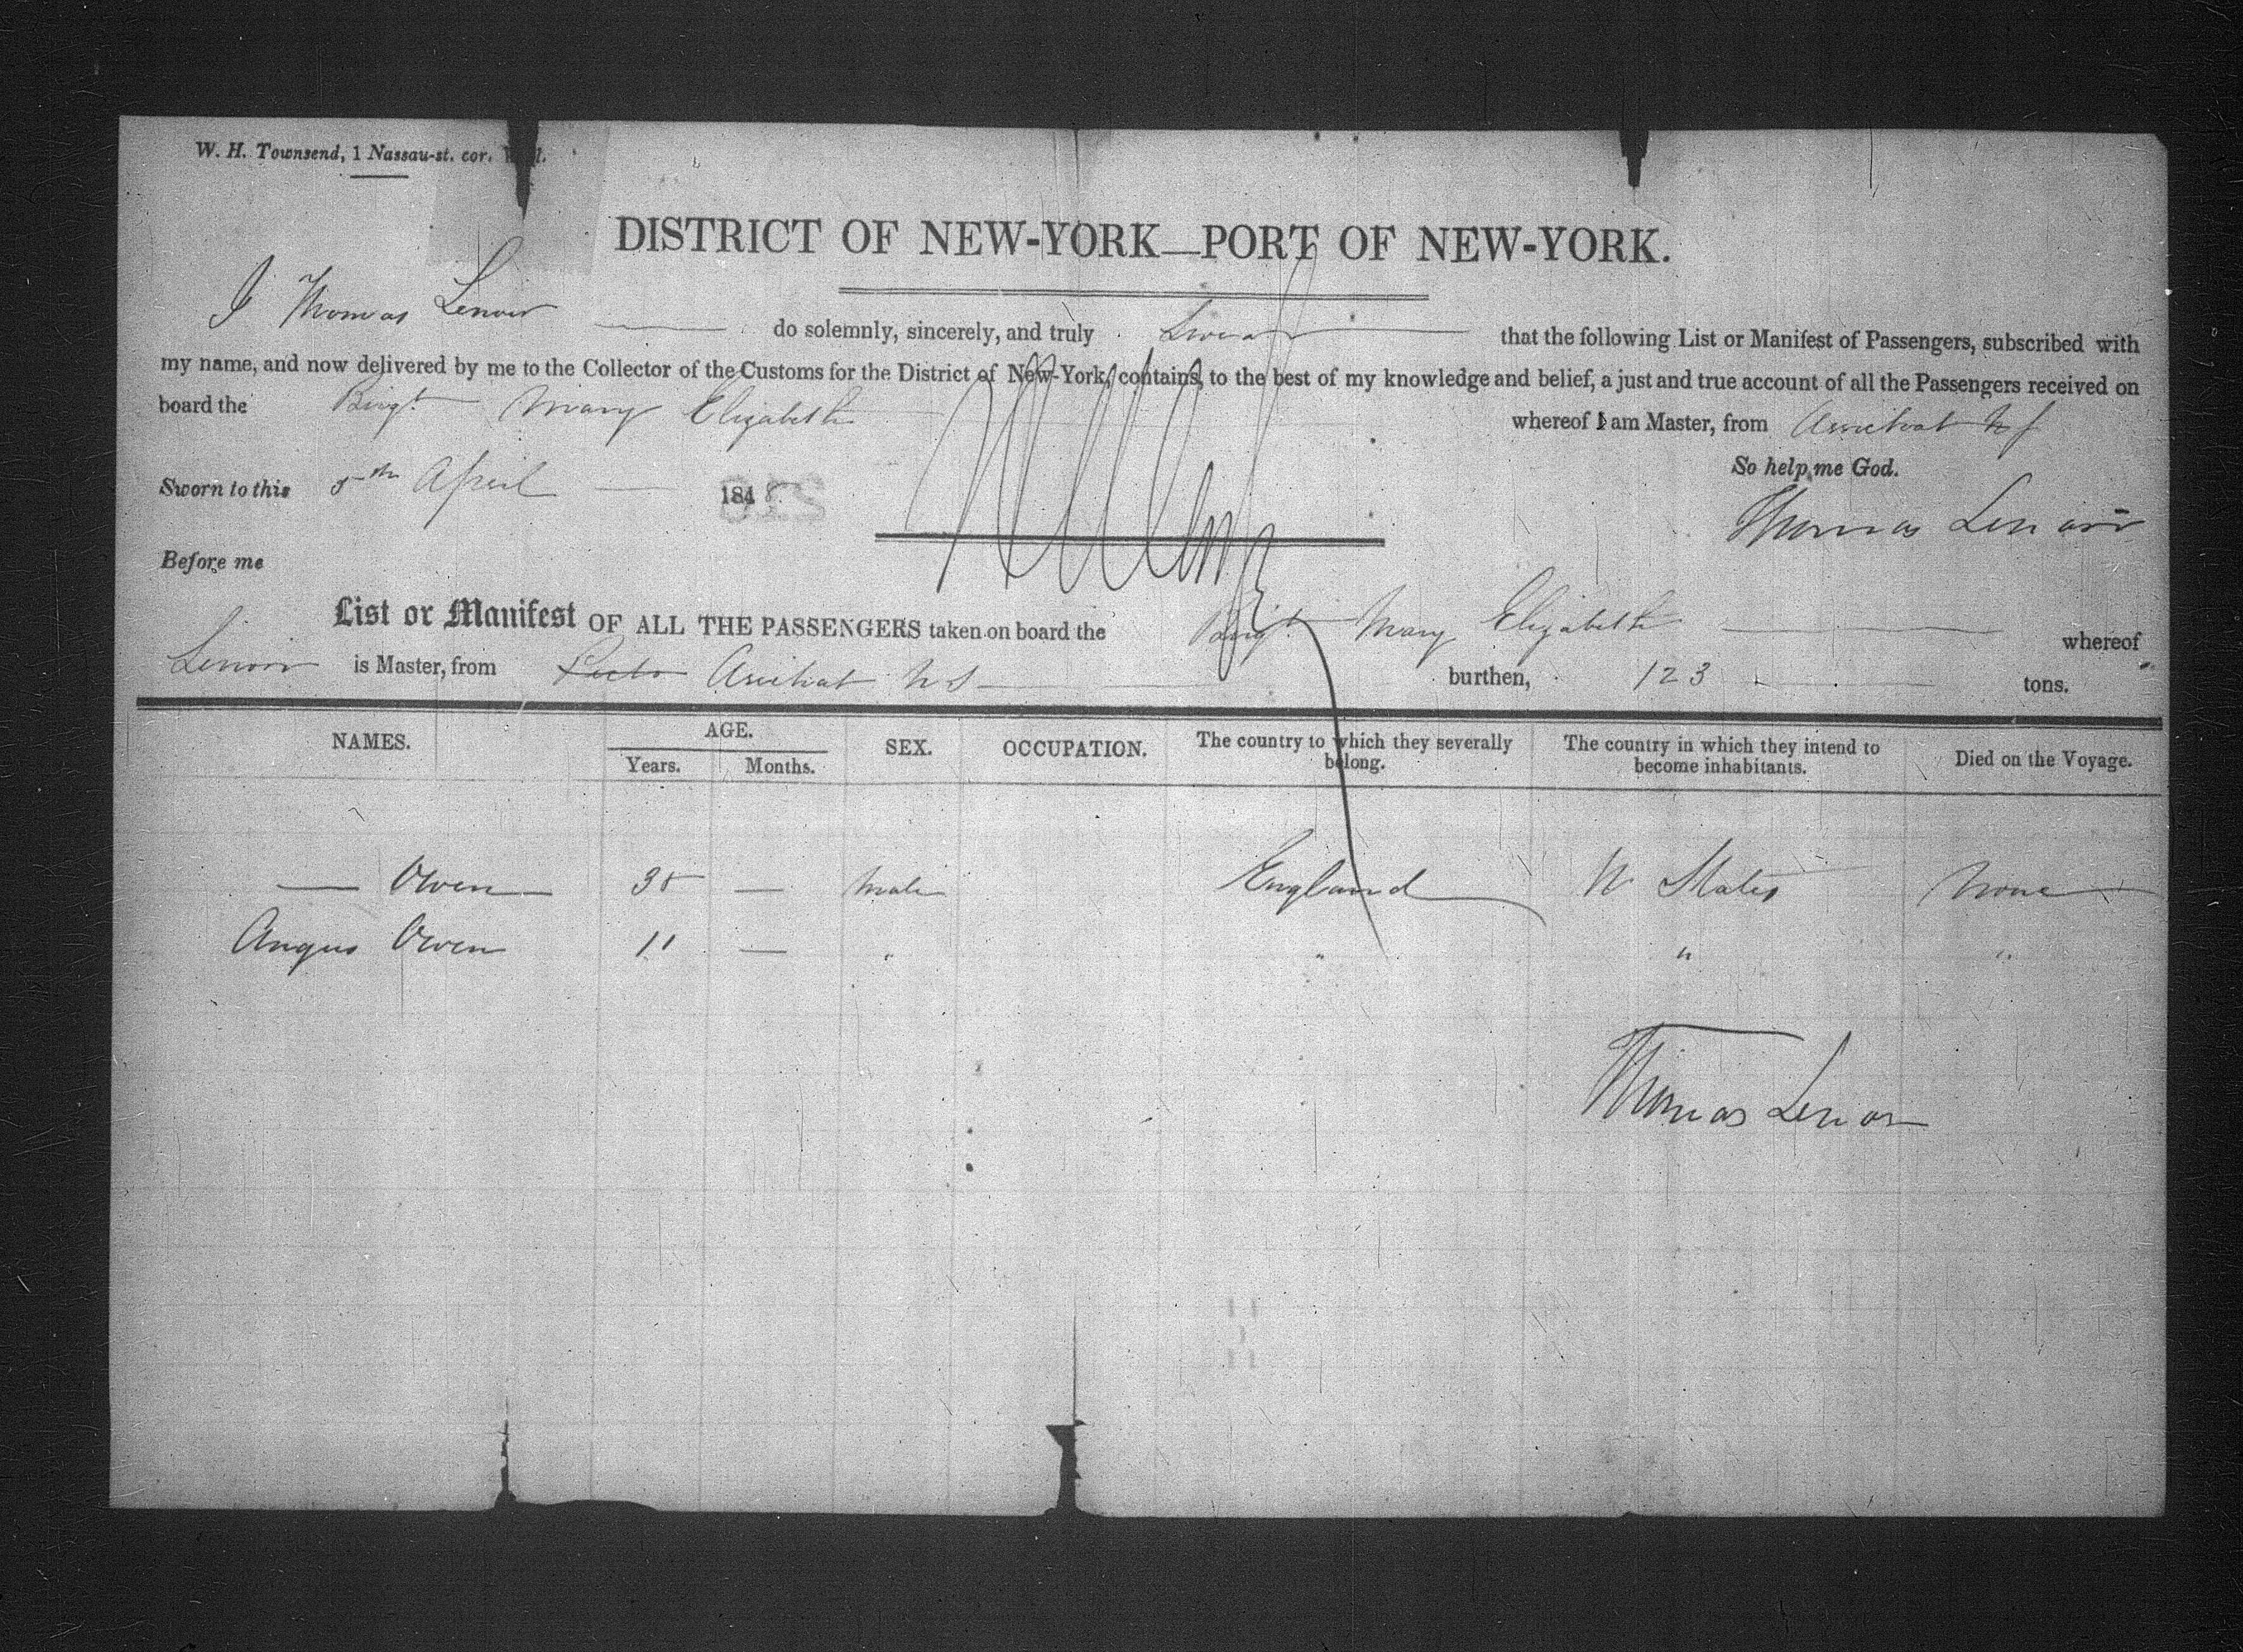 W. H. Townsend, 1 Nassau-st. cor.
DISTRICT OF NEW-YORK—PORT OF NEW-YORK.
I Thomas Lenoir do solemnly, sincerely, and truly Swear that the following List or Manifest of Passengers, subscribed with
my name, and now delivered by me to the Collector of the Customs for the District of New-York, contains, to the best of my knowledge and belief, a just and true account of all the Passengers received on
board the Brigt. Mary Elizabeth whereof I am Master, from Arichat
So help me God.
Sworn to this 5th April 1848
Thomas Lenoir
Before me
List or Manifest OF ALL THE PASSENGERS taken on board the Brigt. Mary Elizabeth whereof
Lenoir is Master, from Arichat N S burthen, 123 tons.
NAMES. AGE. SEX. OCCUPATION. The country to which they severally belong. The country in which they intend to become inhabitants. Died on the Voyage.
Years. Months.
— Owen 35 — Male England U States None
Angus Owen 11 — " " " "
Thomas Lenoir